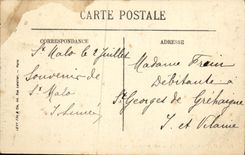 CARTE POSTALE
CORRESPONDANCE
ADRESSE
St Malo le 2 Juillet
Souvenir de
St Malo
Madame
Débitante à
St Georges de Gréhaigne
I. et Vilaine